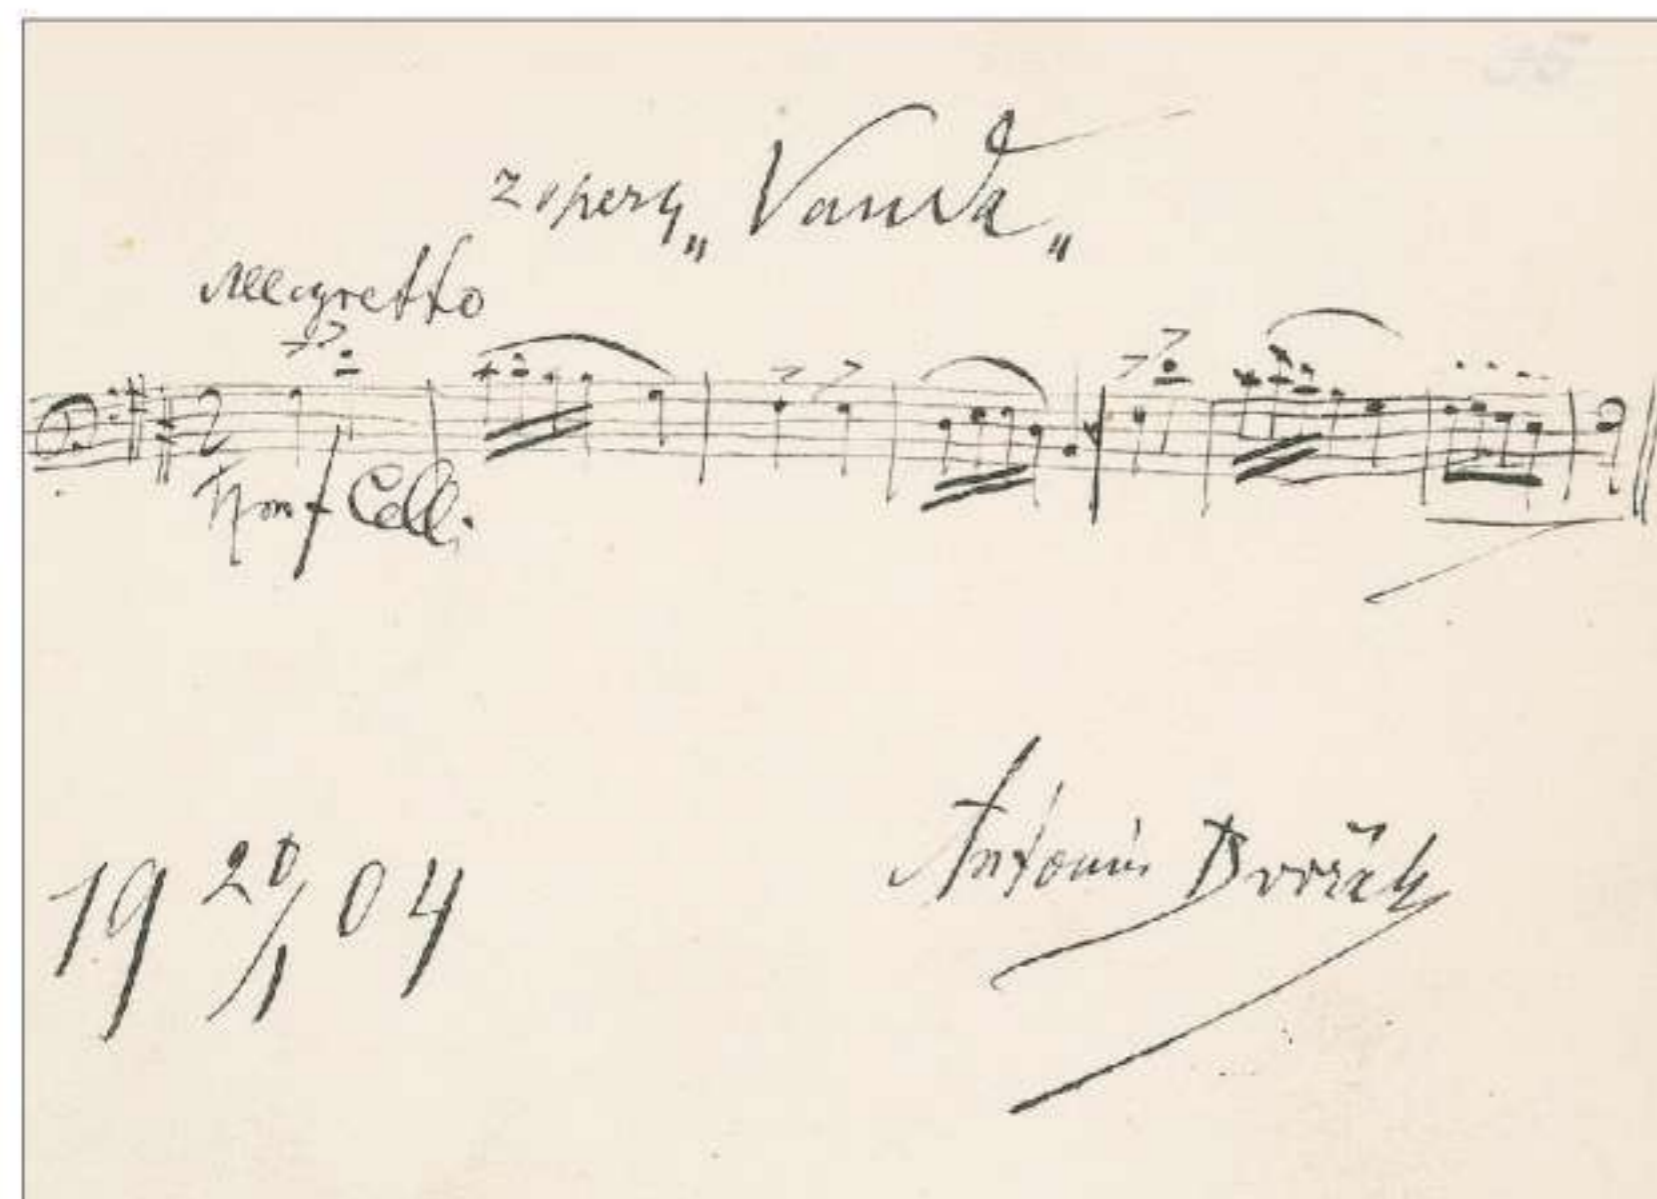 z opery „Vanda„
Allegretto
Celli
19 20/1 04
Antonín Dvořák